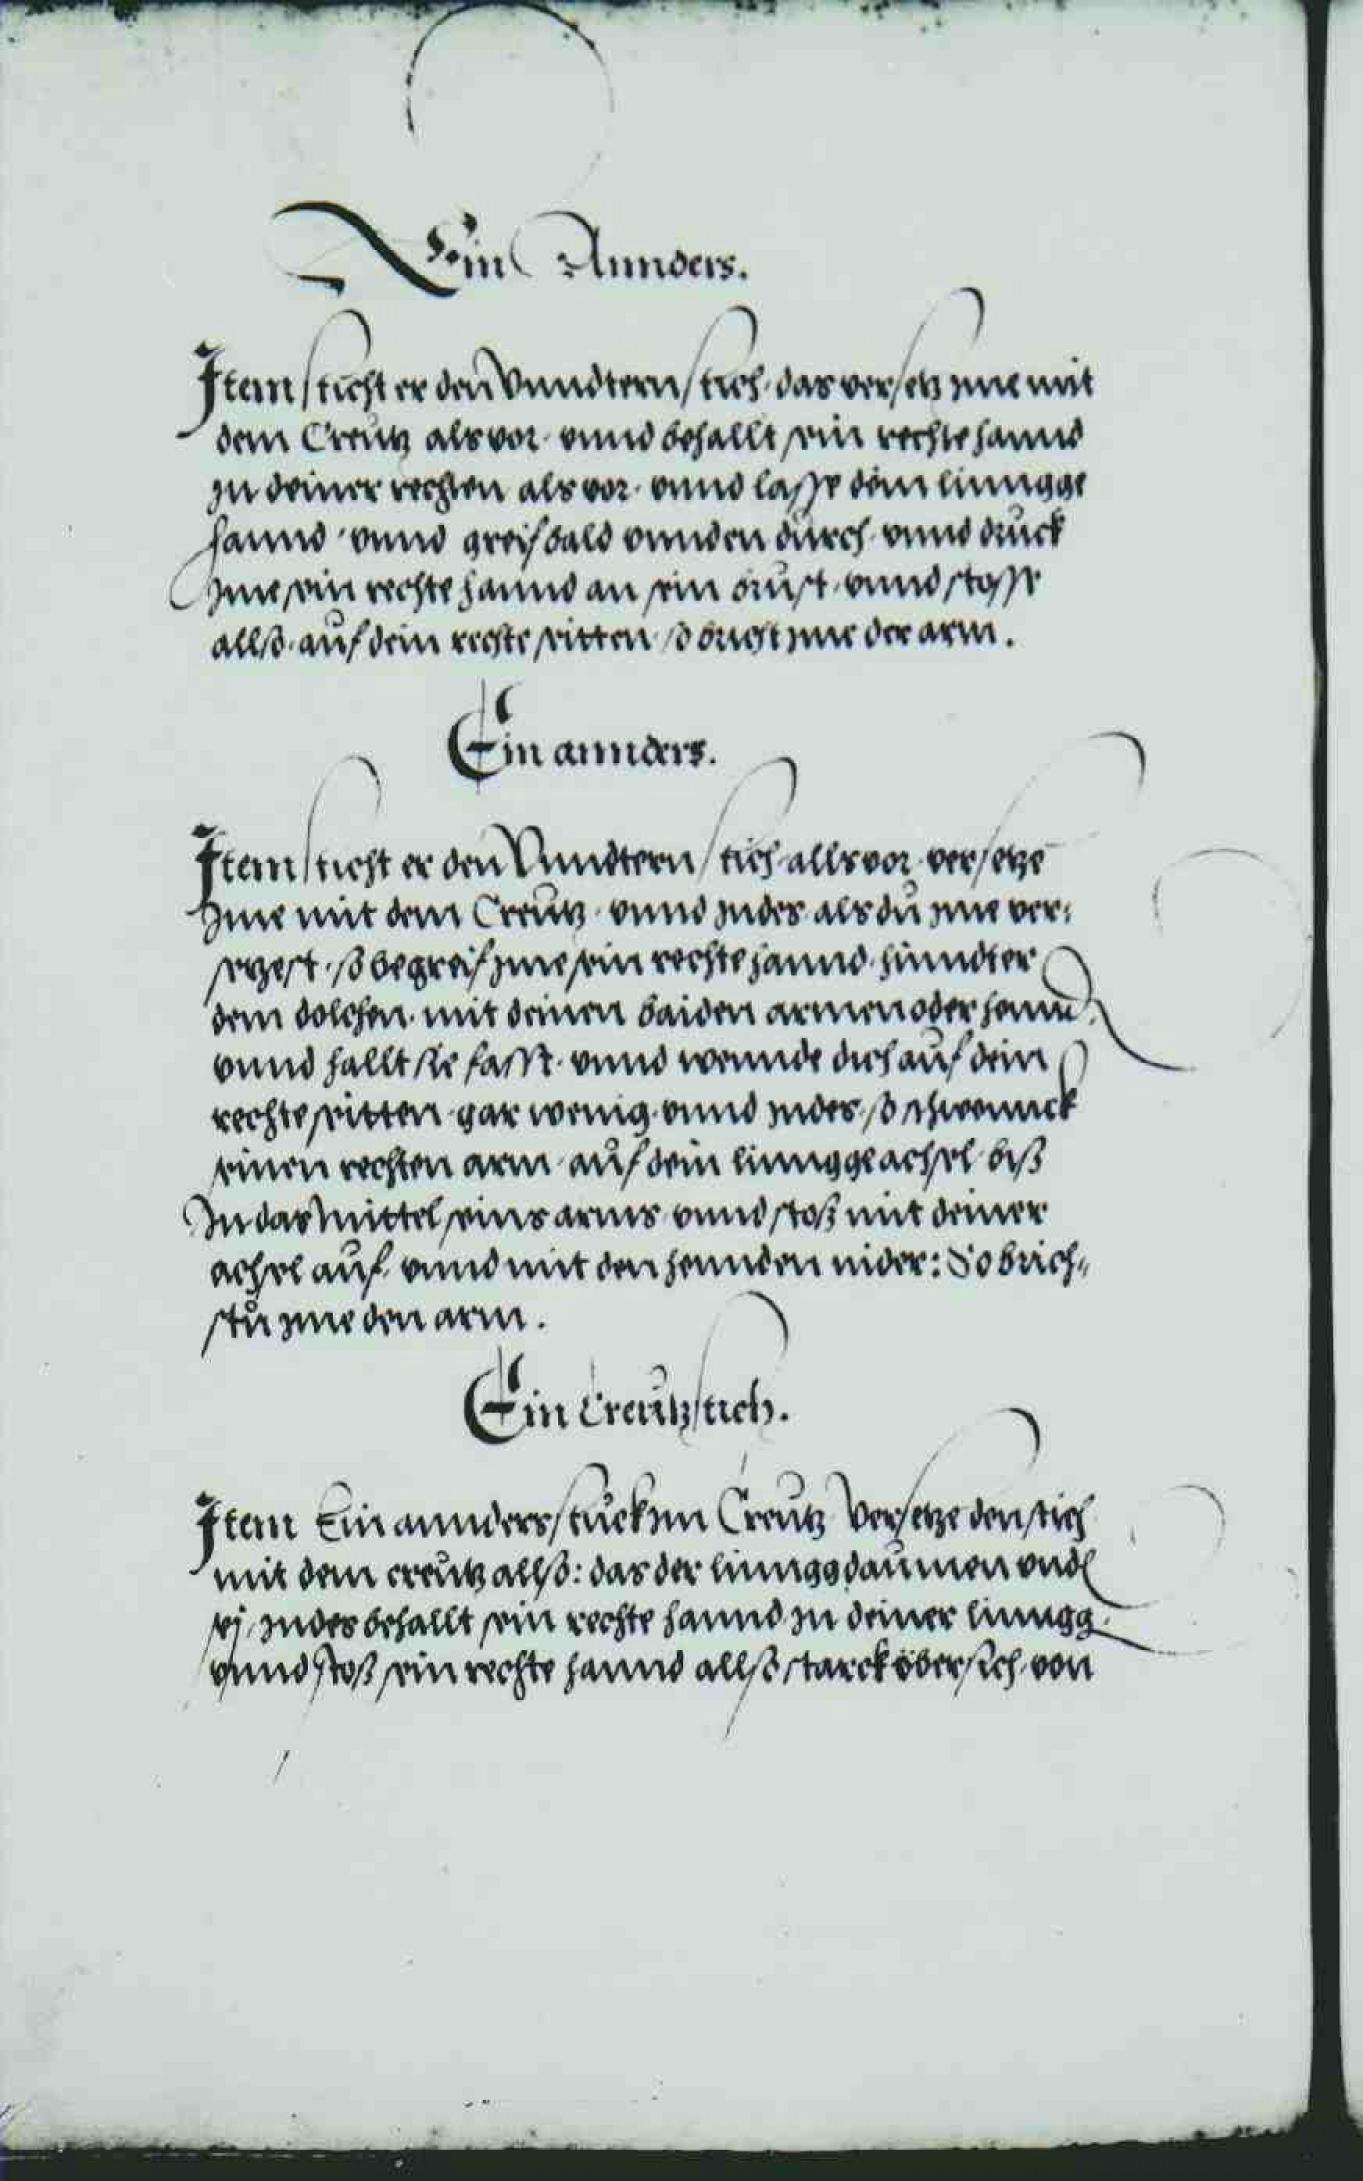 Ein Annders.
Item sticht er den Vnndtern stich, das versetz jme mit
dem Creutz als vor, vnnd behallt sein rechte hannd
jn deiner rechten als vor, vnnd lasse dein linngge
hannd, vnnd greif bald vnnden durch, vnnd druck
jme sein rechte hannd an sein brust, vnnd stosse
allso, auf dein rechte seitten, so bricht jme der arm.
Ein annders.
Item sticht er den Vnndtern stich, alls vor, versetze
jme mit dem Creutz, vnnd jndes, als du jme ver=
setzest, so begreif jme sein rechte hannd, hinndter
dem dolchen, mit deinen baiden armen oder hennd,
vnnd hallt sie fasst, vnnd wennde dich auf dein
rechte seitten, gar wenig, vnnd jndes, so schwennck
seinen rechten arm, auf dein linngge achsel, biß
In das Mittel seins arms, vnnd stoß mit deiner
achsel auf, vnnd mit den hennden nider: So brich=
stu jme den arm.
Ein Creutzstich.
Item Ein annders stuck jm Creutz, Versetze den stich
mit dem creutz allso: das der linngg daumen vnd
sej, jndes behallt sein rechte hannd, jn deiner linngg.
vnnd stoß sein rechte hannd allso starck übersich, von